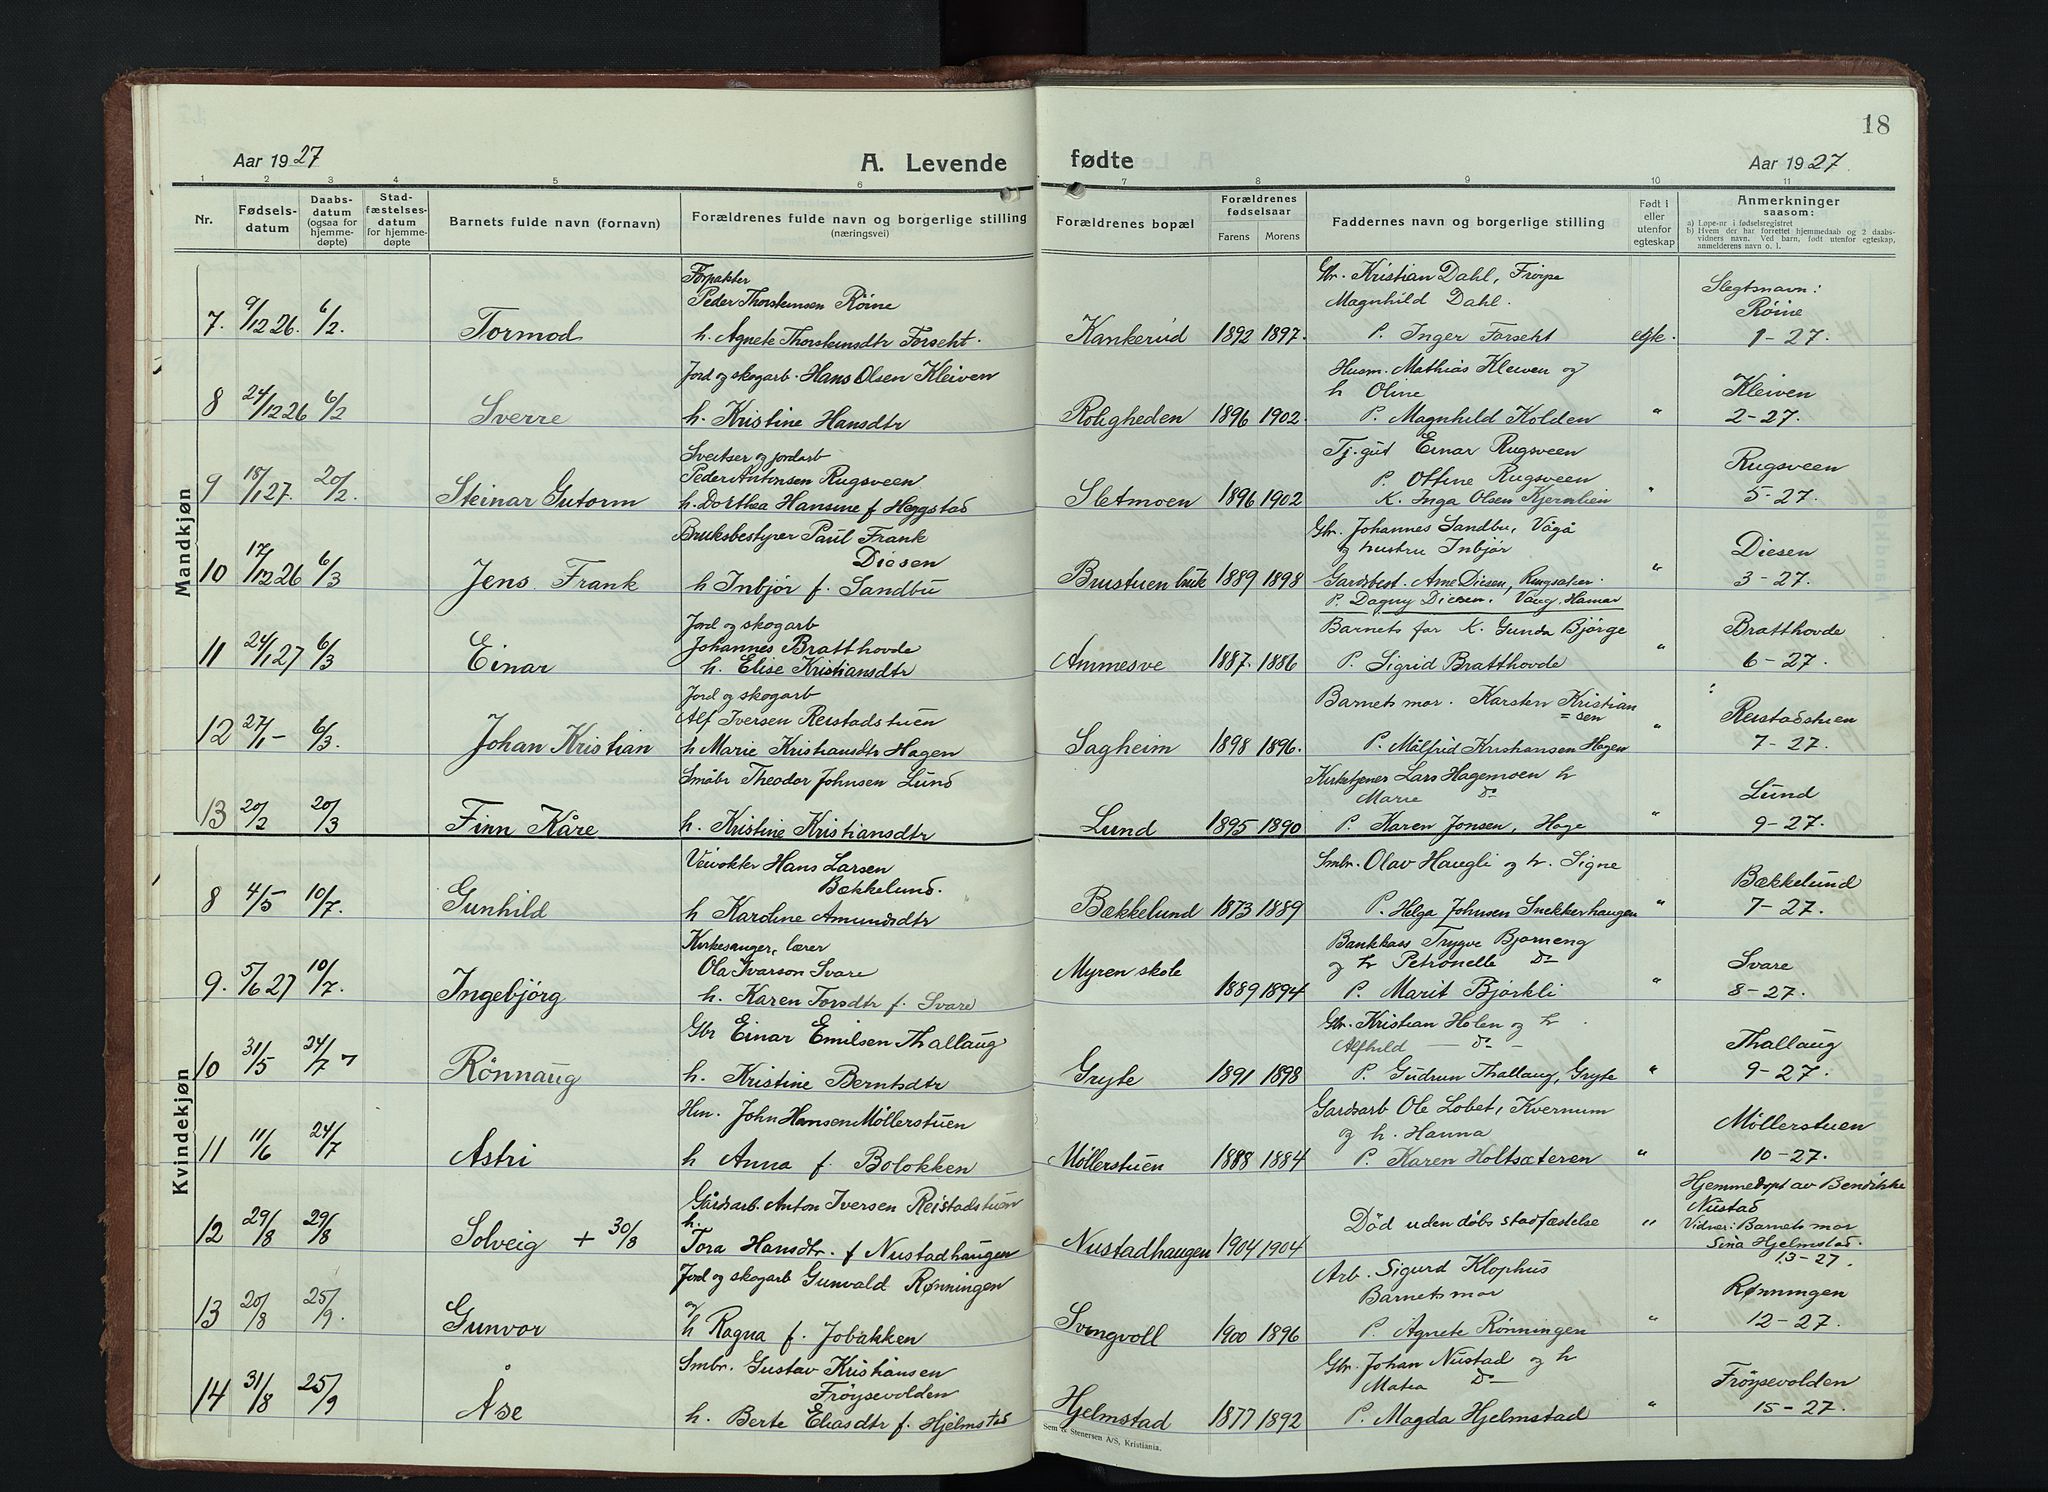 18
Aar 1927
A. Levende
fødte
Aar 1927.
1 2 3 4 5 6 7 8 9 10 11
Nr.
Fødsels-
datum
Daabs-
datum
(ogsaa for
hjemme-
døpte)
Stad-
fæstelses-
datum
for hjemme-
døpte
Barnets fulde navn (fornavn)
Forældrenes fulde navn og borgerlige stilling
(næringsvei)
Forældrenes bopæl
Forældrenes
fødselsaar
Farens Morens
Faddernes navn og borgerlige stilling
Født i
eller
utenfor
egteskap
Anmerkninger
saasom:
a) Løpe-nr i fødselsregistret
b) Hvem der har forrettet hjemmedaab og 2 daabs-
vidners navn. Ved barn, født utenfor egteskap,
anmelderens navn o. l.
Mandkjøn
Forpakter
Peder Thorstensen Røine
7. 9/12 26. 6/2. Tormod h. Agnete Thorstensdtr Forseht. Kankerud 1892 1897.
Gbr. Kristian Dahl, Frøyse
Magnhild Dahl.
P. Inger Forseht egte.
Slegtsnavn:
Røine
1-27.
Jord og skogarb. Hans Olsen Kleiven
8 24/12 26 6/2 Sverre h. Kristine Hansdtr Roligheden 1896 1902.
Husm. Mathias Kleiven og
h Oline
P. Magnhild Kolden "
Kleiven
2-27.
Sveitser og jordarb
Peder Antonsen Rugsveen
9 18/1 27. 20/2. Steinar Gutorm h. Dorthea Hansine f Heggstad Sletmoen 1896 1902
Tj. gut Einar Rugsveen
P. Ottine Rugsveen
K. Inga Olsen Kjernlien "
Rugsveen
5-27.
Bruksbestyrer Paul Frank
Diesen
10 17/12 26 6/3 Jens Frank h Inbjør f. Sandbu Brustuen bruk 1889 1898
Gbr. Johannes Sandbu, Vågå
og hustru Inbjør
Gardsbest. Arne Diesen, Ringsaker. "
P. Dagny Diesen. Vang, Hamar
Diesen
3-27.
Jord og skogarb
Johannes Bratthovde
11 24/1 27 6/3 Einar h. Elise Kristiansdtr Ammesve 1887. 1886
Barnets far K. Gunda Bjørge
P. Sigrid Bratthovde "
Bratthovde
6-27.
Jord og skogarb
Alf Iversen Reistadstuen
12 27/1- 6/3. Johan Kristian h Marie Kristiansdtr Hagen Sagheim 1898 1896.
Barnets mor. Karsten Kristian
=sen
P. Målfrid Kristiansen Hagen "
Reistadstuen
7-27.
Småbr Theodor Johnsen Lund
13 20/2 20/3 Finn Kåre h. Kristine Kristiansdtr Lund 1895 1890
Kirketjener Lars Hagemoen h
Marie Do
P. Karen Jonsen, Hage "
Lund
9-27.
Kvindekjøn
Veivokter Hans Larsen
Bækkelund.
8 4/5 10/7. Gunhild h Karoline Amundsdtr Bækkelund 1873 1889
Smbr. Olav Haugli og h. Signe
P. Helga Johnsen Snekkerhaugen "
Bækkelund
7-27.
Kirkesanger, lærer
Ola Ivarson Svare
9. 5/6 27 10/7. Ingebjørg h. Karen Torsdtr f. Svare Myren skole 1889 1894
Bankkass Trygve Bjørneng
og h Petronelle Do
P. Marit Bjørkli "
Svare
8-27.
Gbr Einar Emilsen Thallaug
10 31/5 24/7 7 Rønnaug h. Kristine Berntsdtr Gryte 1891 1898
Gbr. Kristian Holen og h
Alfhild — do —
P. Gudrun Thallaug, Gryte "
Thallaug
9-27.
Hm. John Hansen Møllerstuen
11 11/6 24/7 Astri h Anna f. Bolokken Møllerstuen 1888 1884
Gardsarb Ole Lobet, Kvernum
og h. Hanna
P. Karen Holtsæteren "
Møllerstuen
10-27.
Gårdsarb. Anton Iversen Reistadstuen
h.
12 29/8 29/8 Solveig + 30/8 Tora Hansdtr. f Nustadhaugen Nustadhaugen 1904 1904
Død uden døbs stadfæstelse "
Hjemmedøpt av Bendikke
Nustad
Vidner: Barnets mor
Sina Hjelmstad.
13-27.
Jord og skogarb Gunvald Rønningen
og
13 20/8 25/9. Gunvor h Ragna f. Jobakken Svingvoll 1900 1896
Arb. Sigurd Klophus
Barnets mor
P. Agnete Rønningen "
Rønningen
12-27.
Smbr. Gustav Kristiansen
Frøysevolden
14 31/8 25/9 Åse h. Berte Eliasdtr f. Hjelmstad Hjelmstad 1877 1892
Gbr. Johan Nustad og h
Matea Do —
P. Magda Hjelmstad "
Frøysevolden
15-27.
Sem & Stenersen A/S, Kristiania.